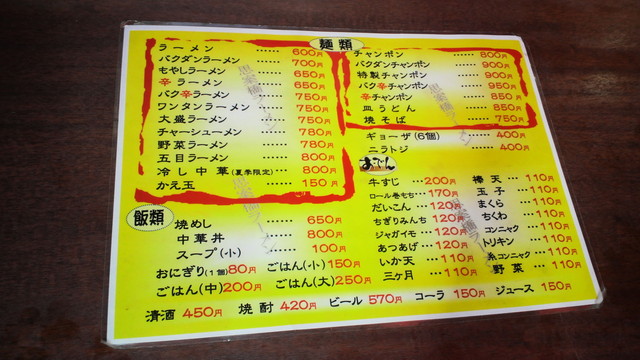 麺類
ラーメン …… 600円
バクダンラーメン …… 700円
もやしラーメン …… 650円
辛ラーメン …… 650円
バク辛ラーメン …… 750円
ワンタンラーメン …… 750円
大盛ラーメン …… 750円
チャーシューメン …… 780円
野菜ラーメン …… 780円
五目ラーメン …… 800円
冷し中華(夏季限定) …… 800円
かえ玉 …… 150円
チャンポン …… 800円
バクダンチャンポン …… 900円
特製チャンポン …… 900円
バク辛チャンポン …… 950円
辛チャンポン …… 850円
皿うどん …… 850円
焼そば …… 750円
ギョーザ(6個) …… 400円
ニラトジ …… 400円
おでん
牛すじ … 200円
ロール巻もち … 170円
だいこん … 120円
ちぎりみんち … 120円
ジャガイモ … 120円
あつあげ … 110円
いか天 … 110円
三ヶ月 … 110円
棒天 … 110円
玉子 … 110円
まくら … 110円
ちくわ … 110円
コンニャク … 110円
トリキン … 110円
糸コンニャク … 110円
野菜 … 110円
飯類
焼めし …… 650円
中華丼 …… 800円
スープ(小) …… 100円
おにぎり(1個) 80円 ごはん(小) 150円
ごはん(中) 200円 ごはん(大) 250円
清酒 450円 焼酎 420円 ビール 570円 コーラ 150円 ジュース 150円